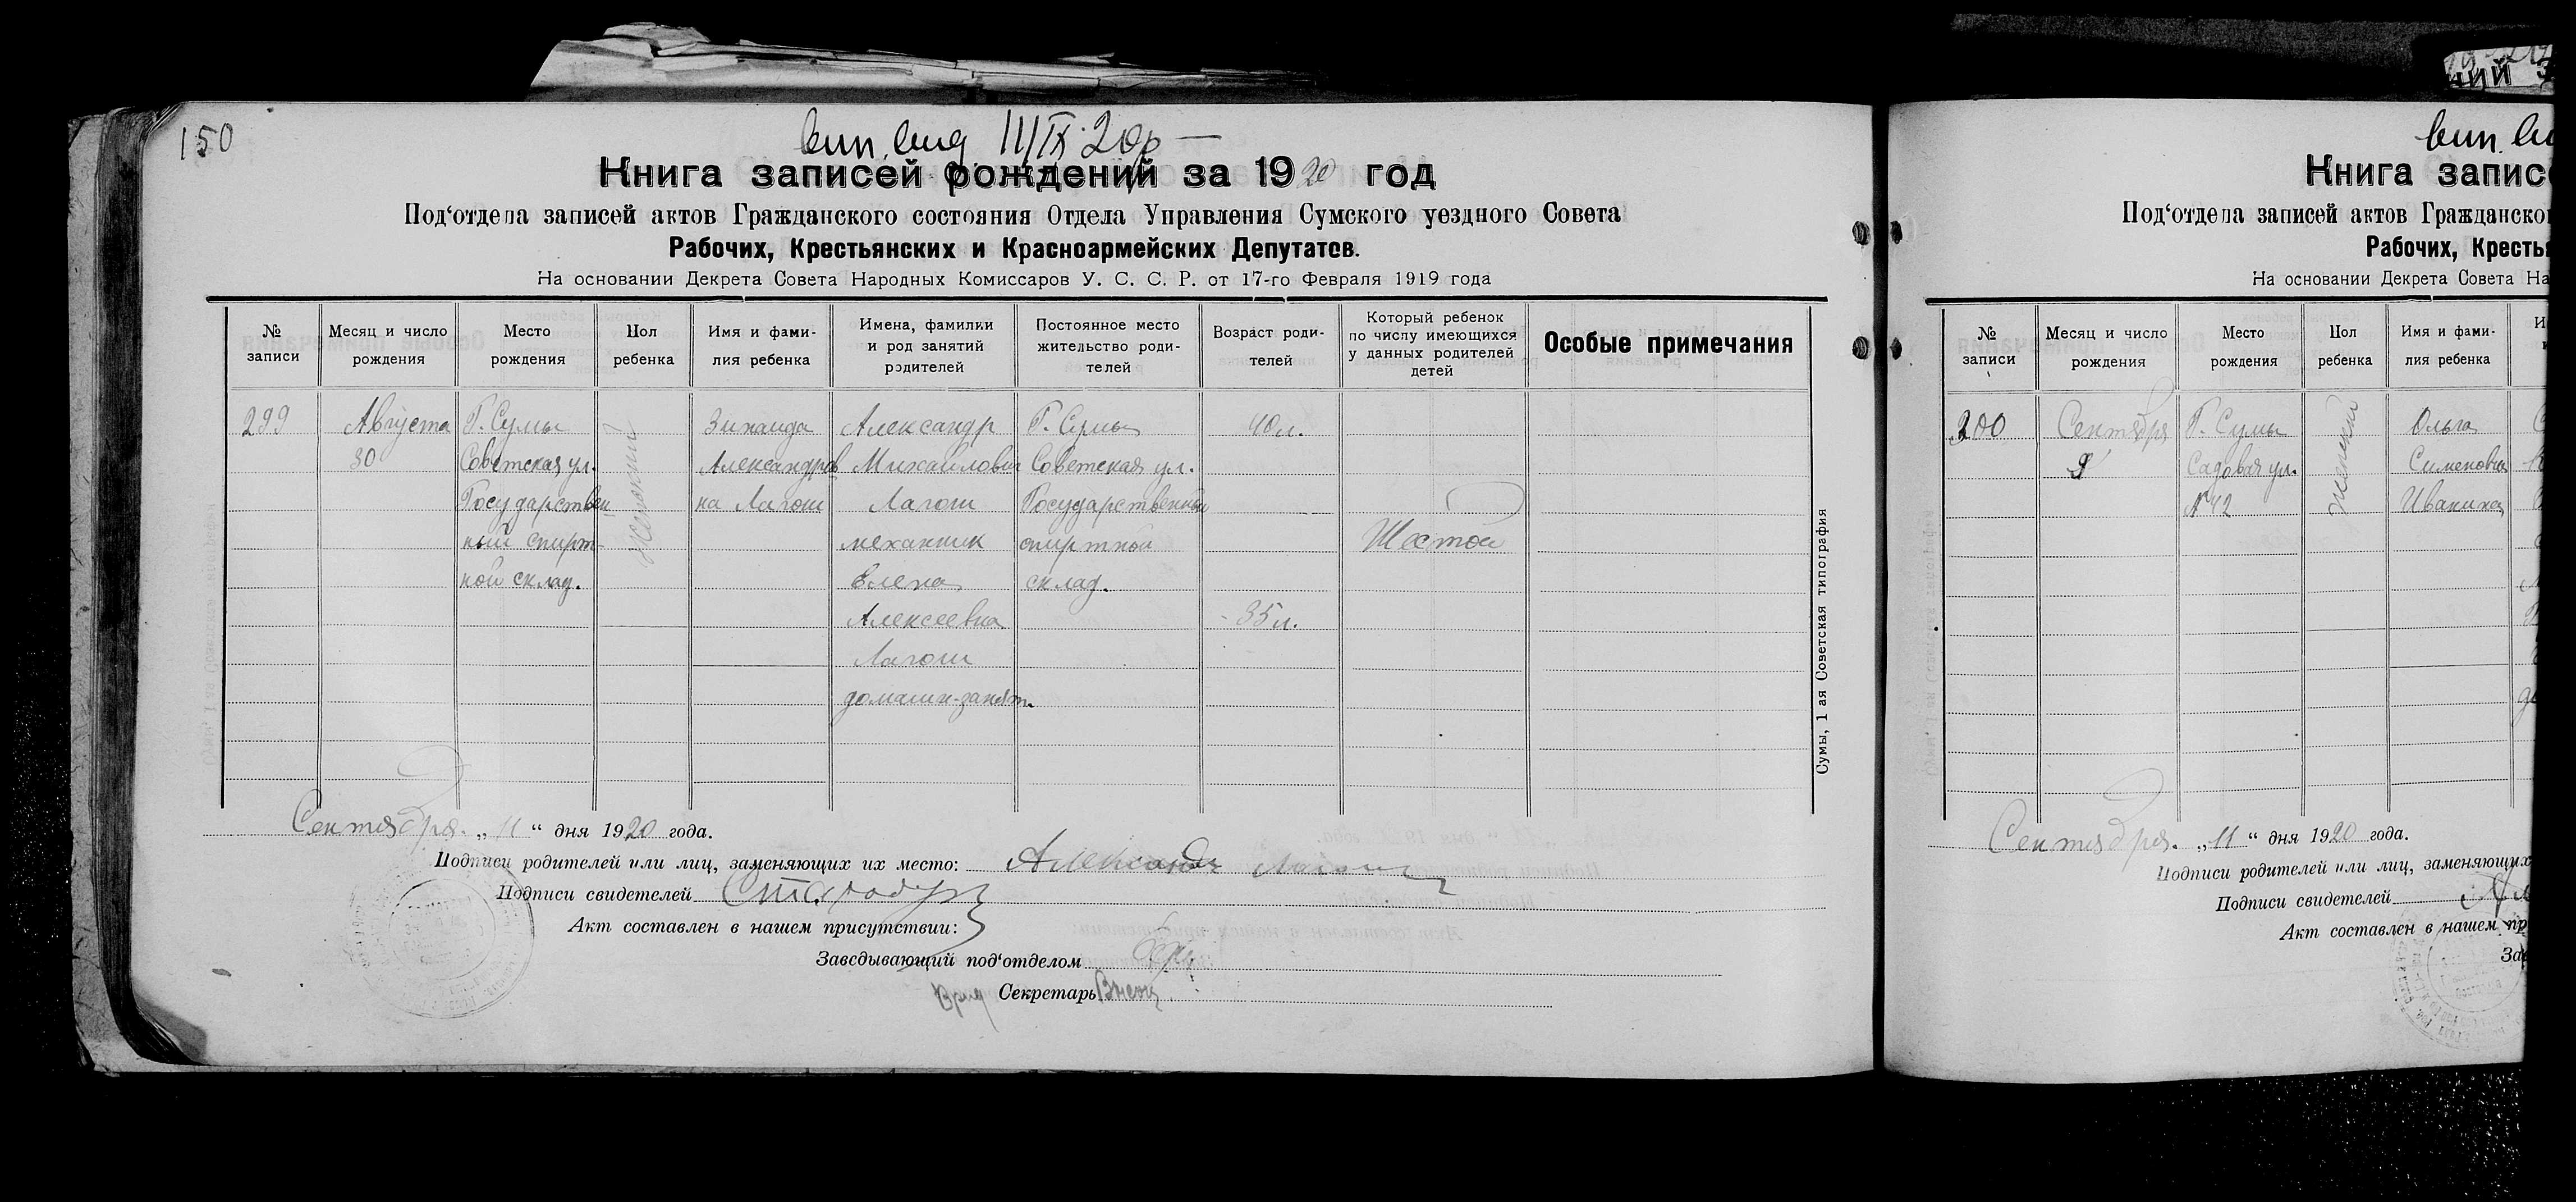 150
вип. вид. 11/IX 20р
Книга записей рождений за 1920 год
Под‘отдела записей актов Гражданского состояния Отдела Управления Сумского уездного Совета
Рабочих, Крестьянских и Красноармейских Депутатов.
На основании Декрета Совета Народных Комиссаров У. С. С. Р. от 17-го Февраля 1919 года
№ записи
Месяц и число рождения
Место рождения
Пол ребенка
Имя и фамилия ребенка
Имена, фамилии и род занятий родителей
Постоянное место жительство родителей
Возраст родителей
Который ребенок по числу имеющихся у данных родителей детей
Особые примечания
299
Августа
30
Г. Сумы
Советская ул.
Государствен
ный спирт-
ной склад.
Женский
Зинаида
Александров
на Лагош
Александр
Михайлович
Лагош
механик
Елена
Алексеевна
Лагош
домашн-занят.
Г. Сумы
Советская ул.
Государственный
спиртной
склад.
40 л.
35 л.
Шестой
Сумы, 1 ая Советская типография
Сентября „11“ дня 1920 года.
Подписи родителей или лиц, заменяющих их место: Александр Лагош
Подписи свидетелей
Акт составлен в нашем присутствии:
Заведывающий под‘отделом
Врид Секретарь
вип. ви
Книга запис
Под‘отдела записей актов Гражданско
Рабочих, Крестья
На основании Декрета Совета На
№ записи
Месяц и число рождения
Место рождения
Пол ребенка
Имя и фамилия ребенка
300
Сентября
Г. Сумы
Садовая ул.
№ 42
Женский
Ольга
Сименовна
Иванина
Сентября. „11“ дня 1920 года.
Подписи родителей или лиц, заменяющих
Подписи свидетелей
Акт составлен в нашем пр
За